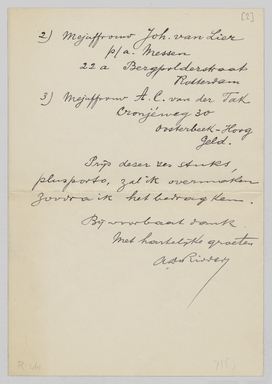 [2]
2) Mejuffrouw Joh. van Lier
p/a. Messen
22a Bergpolderstraat
Rotterdam
3) Mejuffrouw A. C. van der Tak
Oranjeweg 30
Oosterbeek-Hoog
Geld.
Prijs dezer zes stuks
plus porto, zal ik overmaken
zoodra ik het bedrag ken.
Bij voorbaat dank.
Met hartelijke groeten